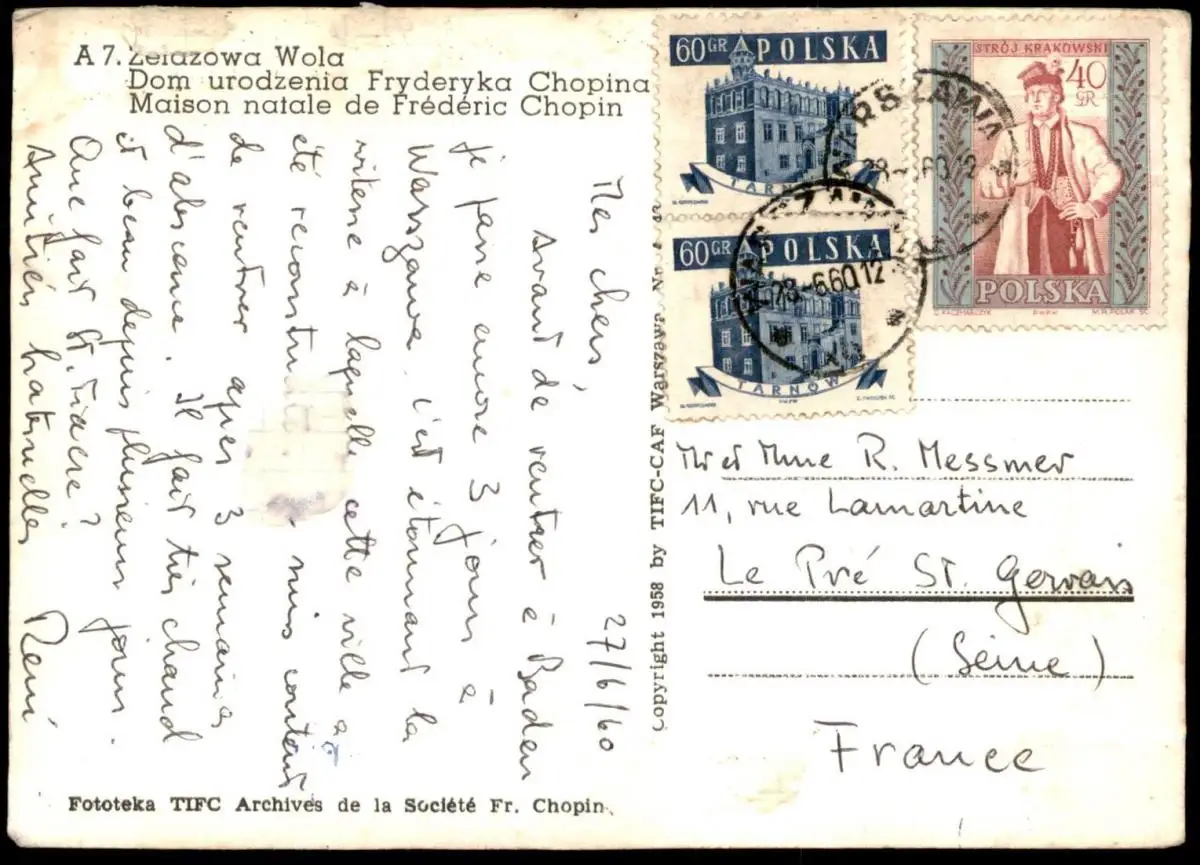 A 7. Żelazowa Wola
Dom urodzenia Fryderyka Chopina
Maison natale de Frédéric Chopin
27/6/60
Mes chers,
Avant de rentrer à Baden
je passe encore 3 jours à
Warszawa. C'est étonnant la
vitesse à laquelle cette ville a
été reconstru suis content
de rentrer après 3 semaines
d'absence. Il fait très chaud
et beau depuis plusieurs jours.
Que fait St. Fiacre?
Amitiés habituelles René
Fototeka TIFC Archives de la Société Fr. Chopin
Copyright 1958 by TIFC-CAF Warszawa
60 GR POLSKA
TARNÓW
60 GR POLSKA
TARNÓW
STRÓJ KRAKOWSKI
40 GR
POLSKA
C. KACZMARCZYK PWPW M.R. POLAK SC.
WARSZAWA
WARSZAWA
28-6.60.12
Mr et Mme R. Messmer
11, rue Lamartine
Le Pré St. Gervais
(Seine)
France